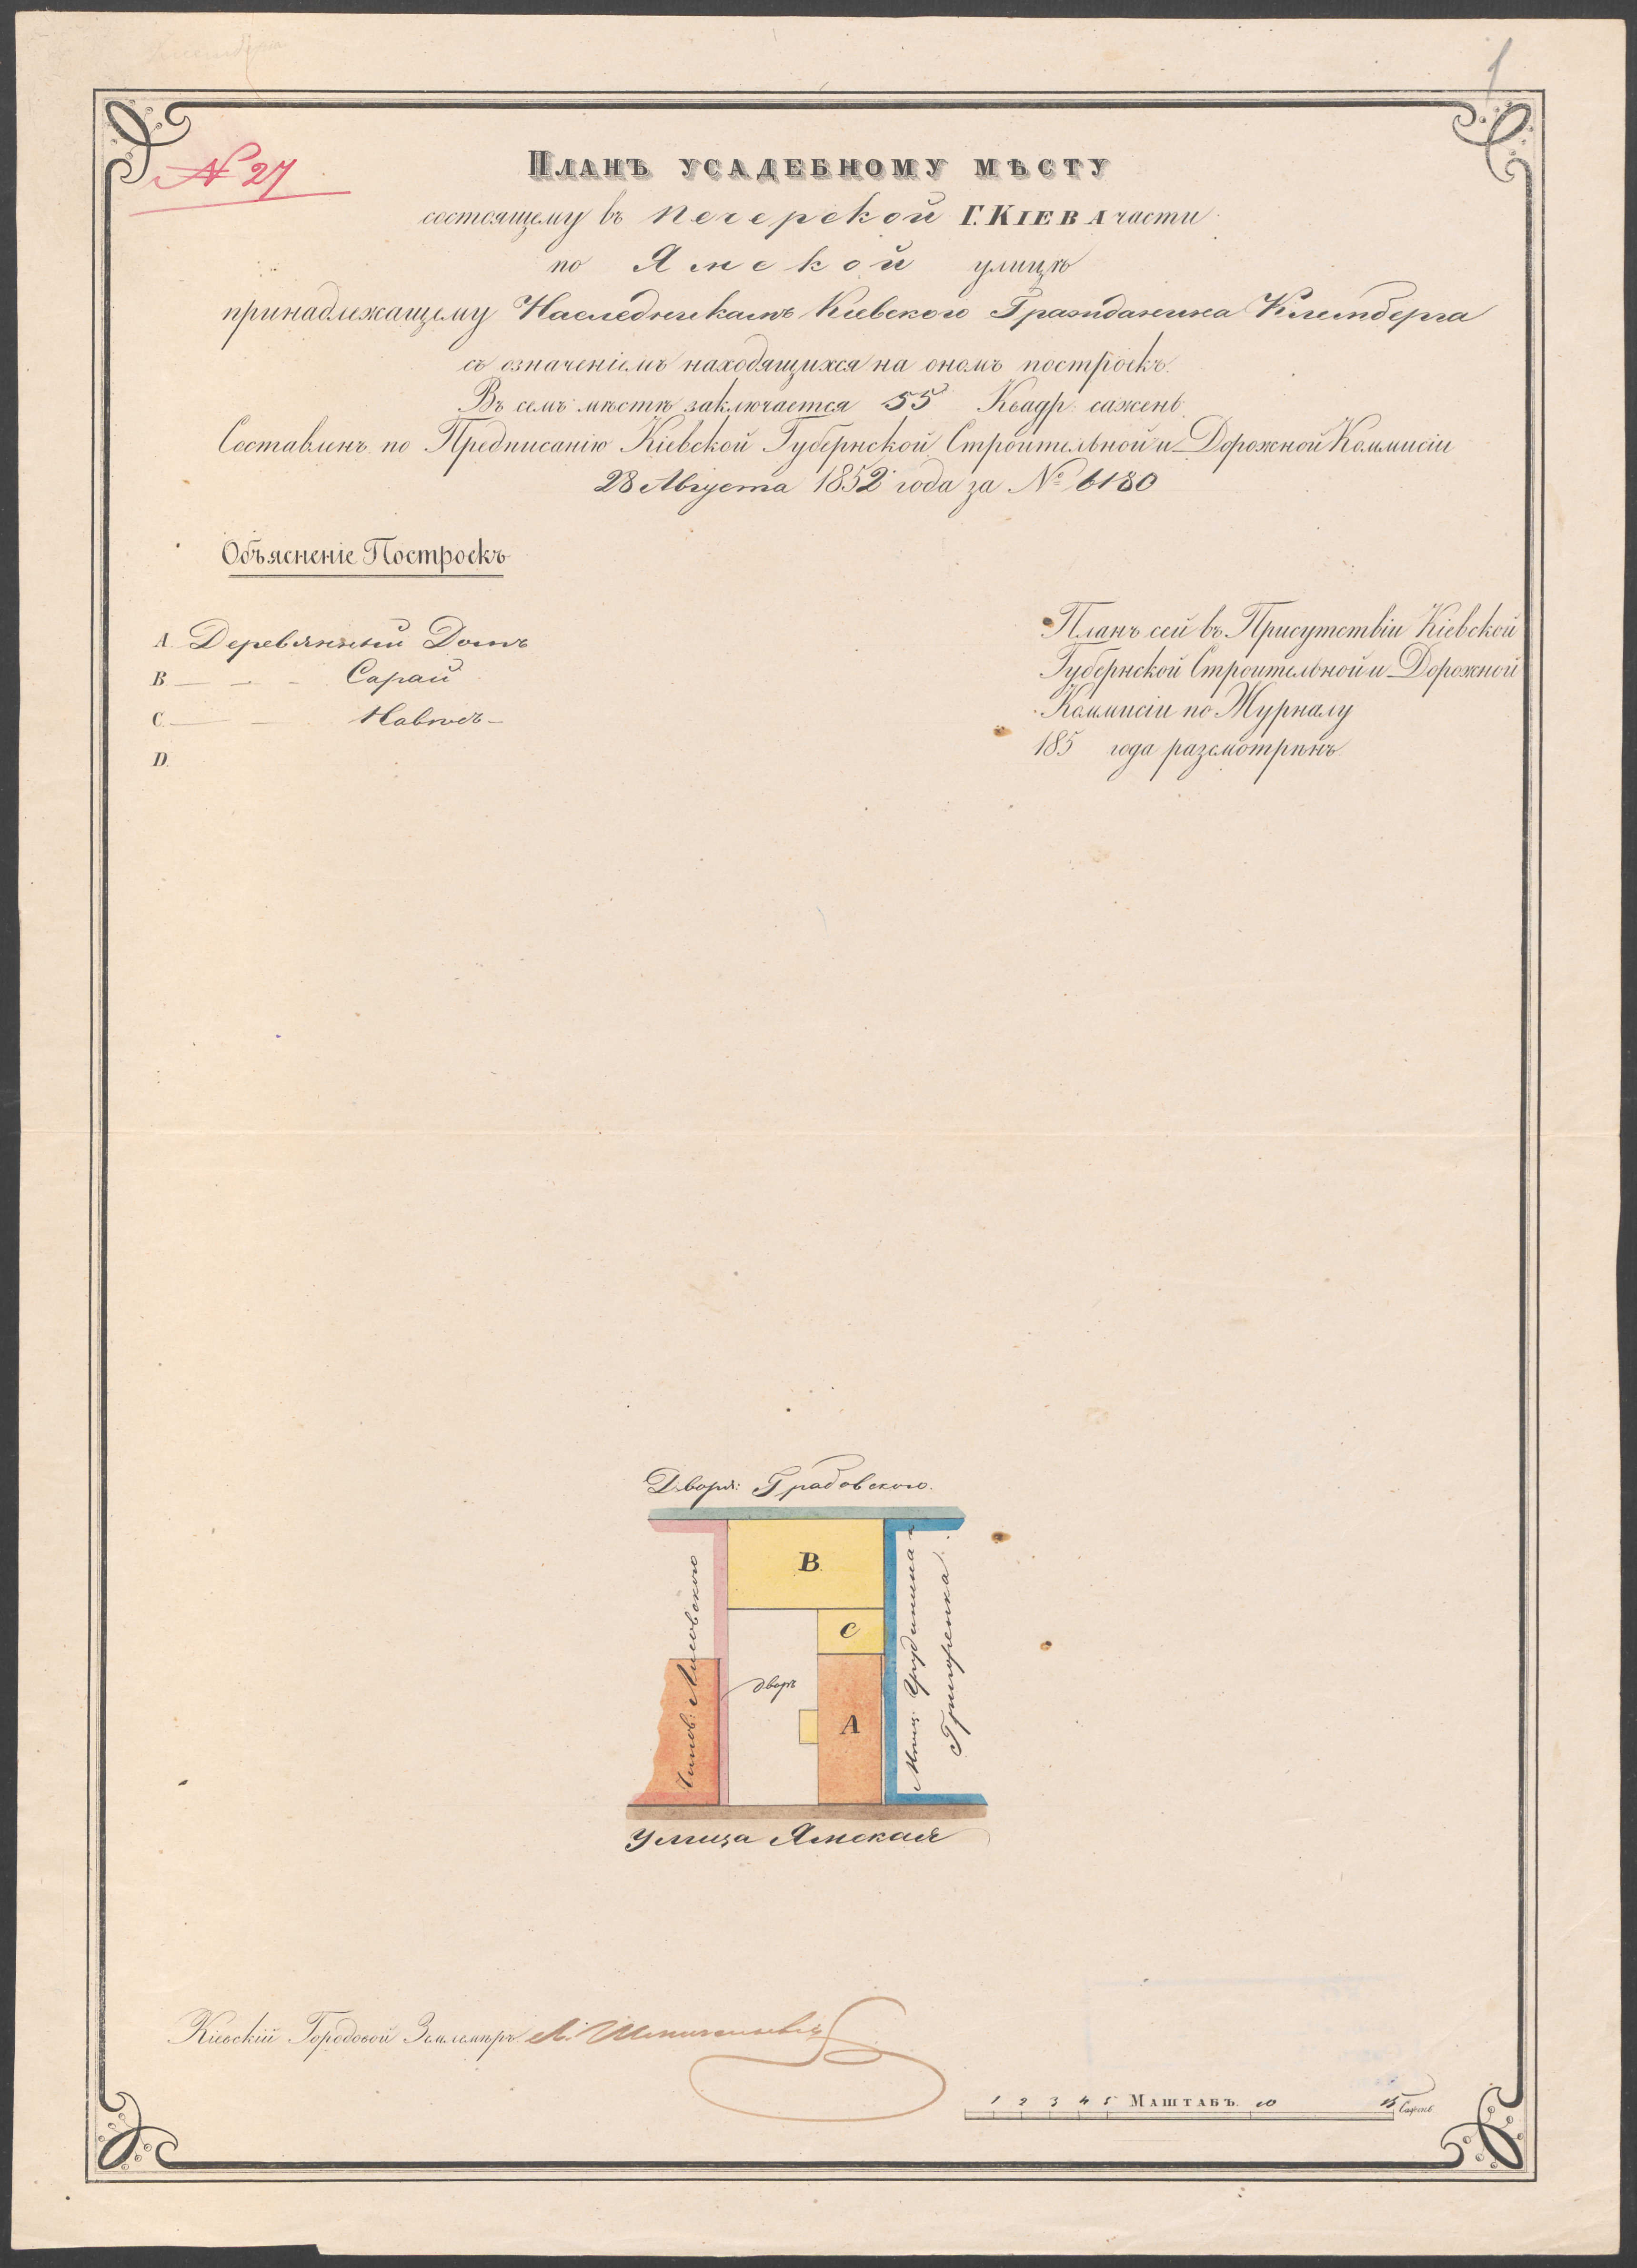 1
№ 27
Планъ усадебному мѣсту
состоящему въ Печерской г. Кіева части
по Ямской улицѣ
принадлежащему Наследникамъ Кіевского Гражданина
съ означеніемъ находящихся на ономъ построекъ.
Въ семъ мѣстѣ заключается 55 Квадр: сажень
Составленъ по Предписанію Кіевской Губернской Строительной и Дорожной Коммисіи
28 Августа 1852 года за № 6180
Объясненіе Построекъ
А. Деревянный Домъ
В — — - Сарай
С. — — Навѣсъ —
D.
Планъ сей въ Присутствіи Кіевской
Губернской Строительной и Дорожной
Коммисіи по Журналу
185 года разсмотрѣнъ
Дворя: Грабовского.
B.
C
дворъ
A
Чинов:
Мѣщ:
Григоренка.
Улица Ямская
Кіевскій Городовой Землемѣръ
1 2 3 4 5 Маштабъ. 10 15 Сажень